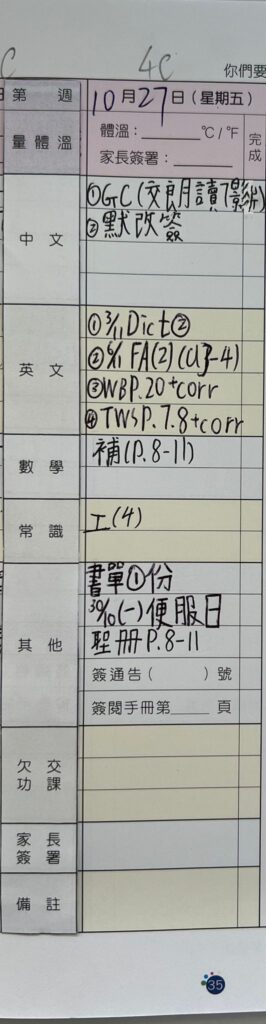 C 4C 你們要
第 週 10月27日(星期五)
量體溫 體溫:______°C/°F 完成
家長簽署:______
中文 ①GC(交朗讀影片)
②默改簽
英文 ①3/11 Dict②
②6/11 FA(2)(U3-4)
③WBP.20+corr
④TWSP.7.8+corr
數學 補(P.8-11)
常識 工(4)
其他 書單①份
30/10(一)便服日
聖冊P.8-11
簽通告( )號
簽閱手冊第____頁
欠交功課
家長簽署
備註
35